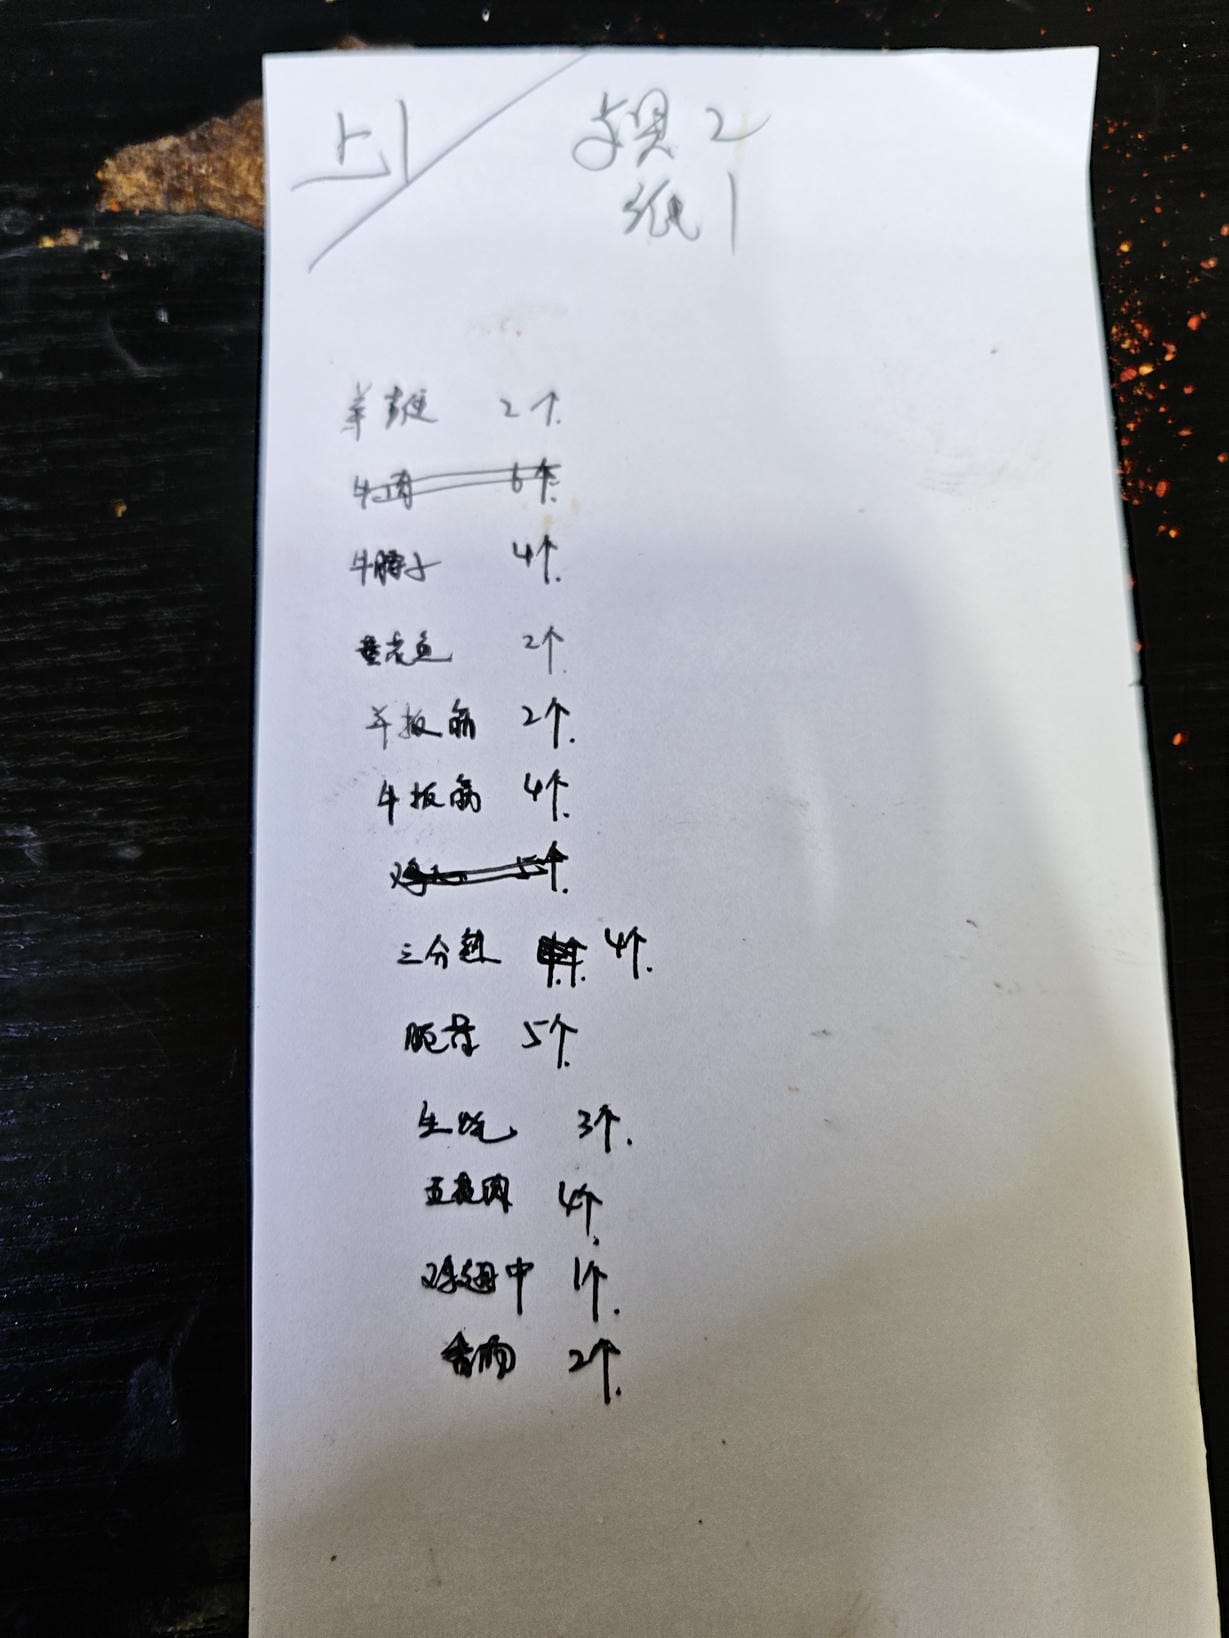 上1
餐具 2
纸 1
2个.
牛肉 6个.
牛脖子 4个.
鱼 2个.
羊板筋 2个.
牛板筋 4个.
鸡 5个.
三分熟 4个.
脆骨 5个.
生蚝 3个.
五花肉 4个.
鸡翅中 1个.
香肠 2个.